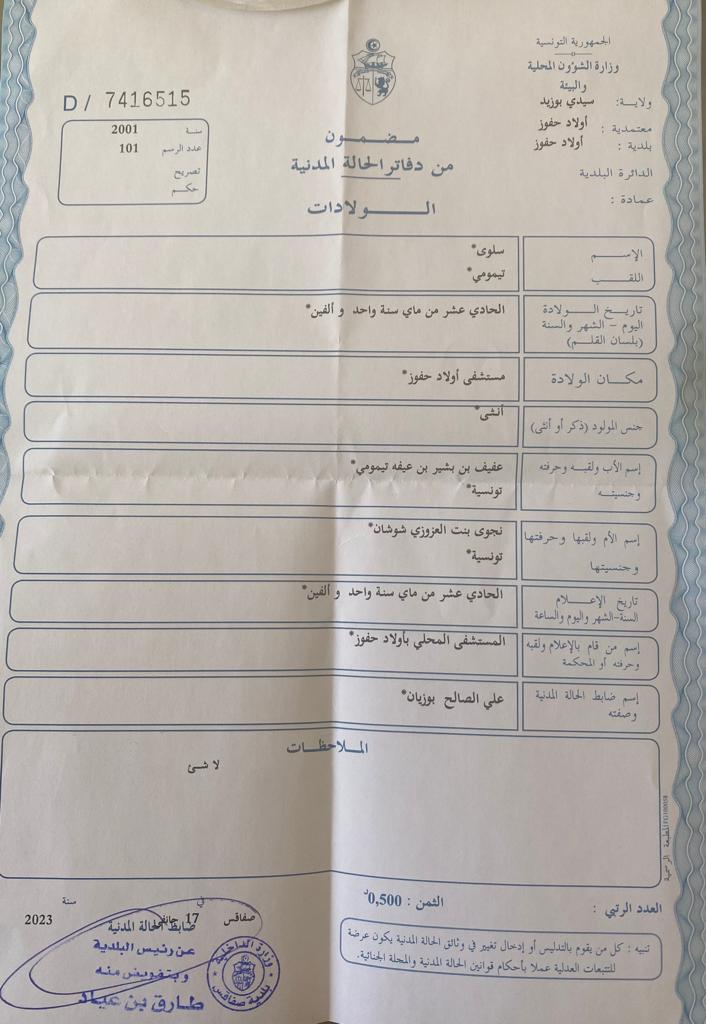 الجمهورية التونسية
وزارة الشؤون المحلية
والبيئة
ولاية: سيدي بوزيد
معتمدية : أولاد حفوز
بلدية : أولاد حفوز
الدائرة البلدية
عمادة :
D / 7416515
سنة 2001
عدد الرسم 101
تصريح
حكم
مضمون
من دفاتر الحالة المدنية
الولادات
الإسم سلوى*
اللقب تيمومي*
تاريخ الولادة الحادي عشر من ماي سنة واحد و ألفين*
اليوم - الشهر والسنة
(بلسان القلم)
مكان الولادة مستشفى أولاد حفوز*
جنس المولود (ذكر أو أنثى) أنثى*
إسم الأب ولقبه وحرفته عفيف بن بشير بن عيفه تيمومي*
وجنسيته تونسية*
إسم الأم ولقبها وحرفتها نجوى بنت العزوزي شوشان*
وجنسيتها تونسية*
تاريخ الإعلام الحادي عشر من ماي سنة واحد و ألفين*
السنة-الشهر واليوم والساعة
إسم من قام بالإعلام ولقبه المستشفى المحلي بأولاد حفوز*
وحرفته أو المحكمة
إسم ضابط الحالة المدنية علي الصالح بوزيان*
وصفته
الملاحظات
لا شئ
المطبعة الرسمية
العدد الرتبي :
الثمن : 0,500د
تنبيه : كل من يقوم بالتدليس أو إدخال تغيير في وثائق الحالة المدنية يكون عرضة
للتتبعات العدلية عملا بأحكام قوانين الحالة المدنية والمجلة الجنائية.
صفاقس في 17 جانفي سنة 2023
ضابط الحالة المدنية
عن رئيس البلدية
وبتفويض منه
طارق بن عياد
وزارة الداخلية
بلدية صفاقس